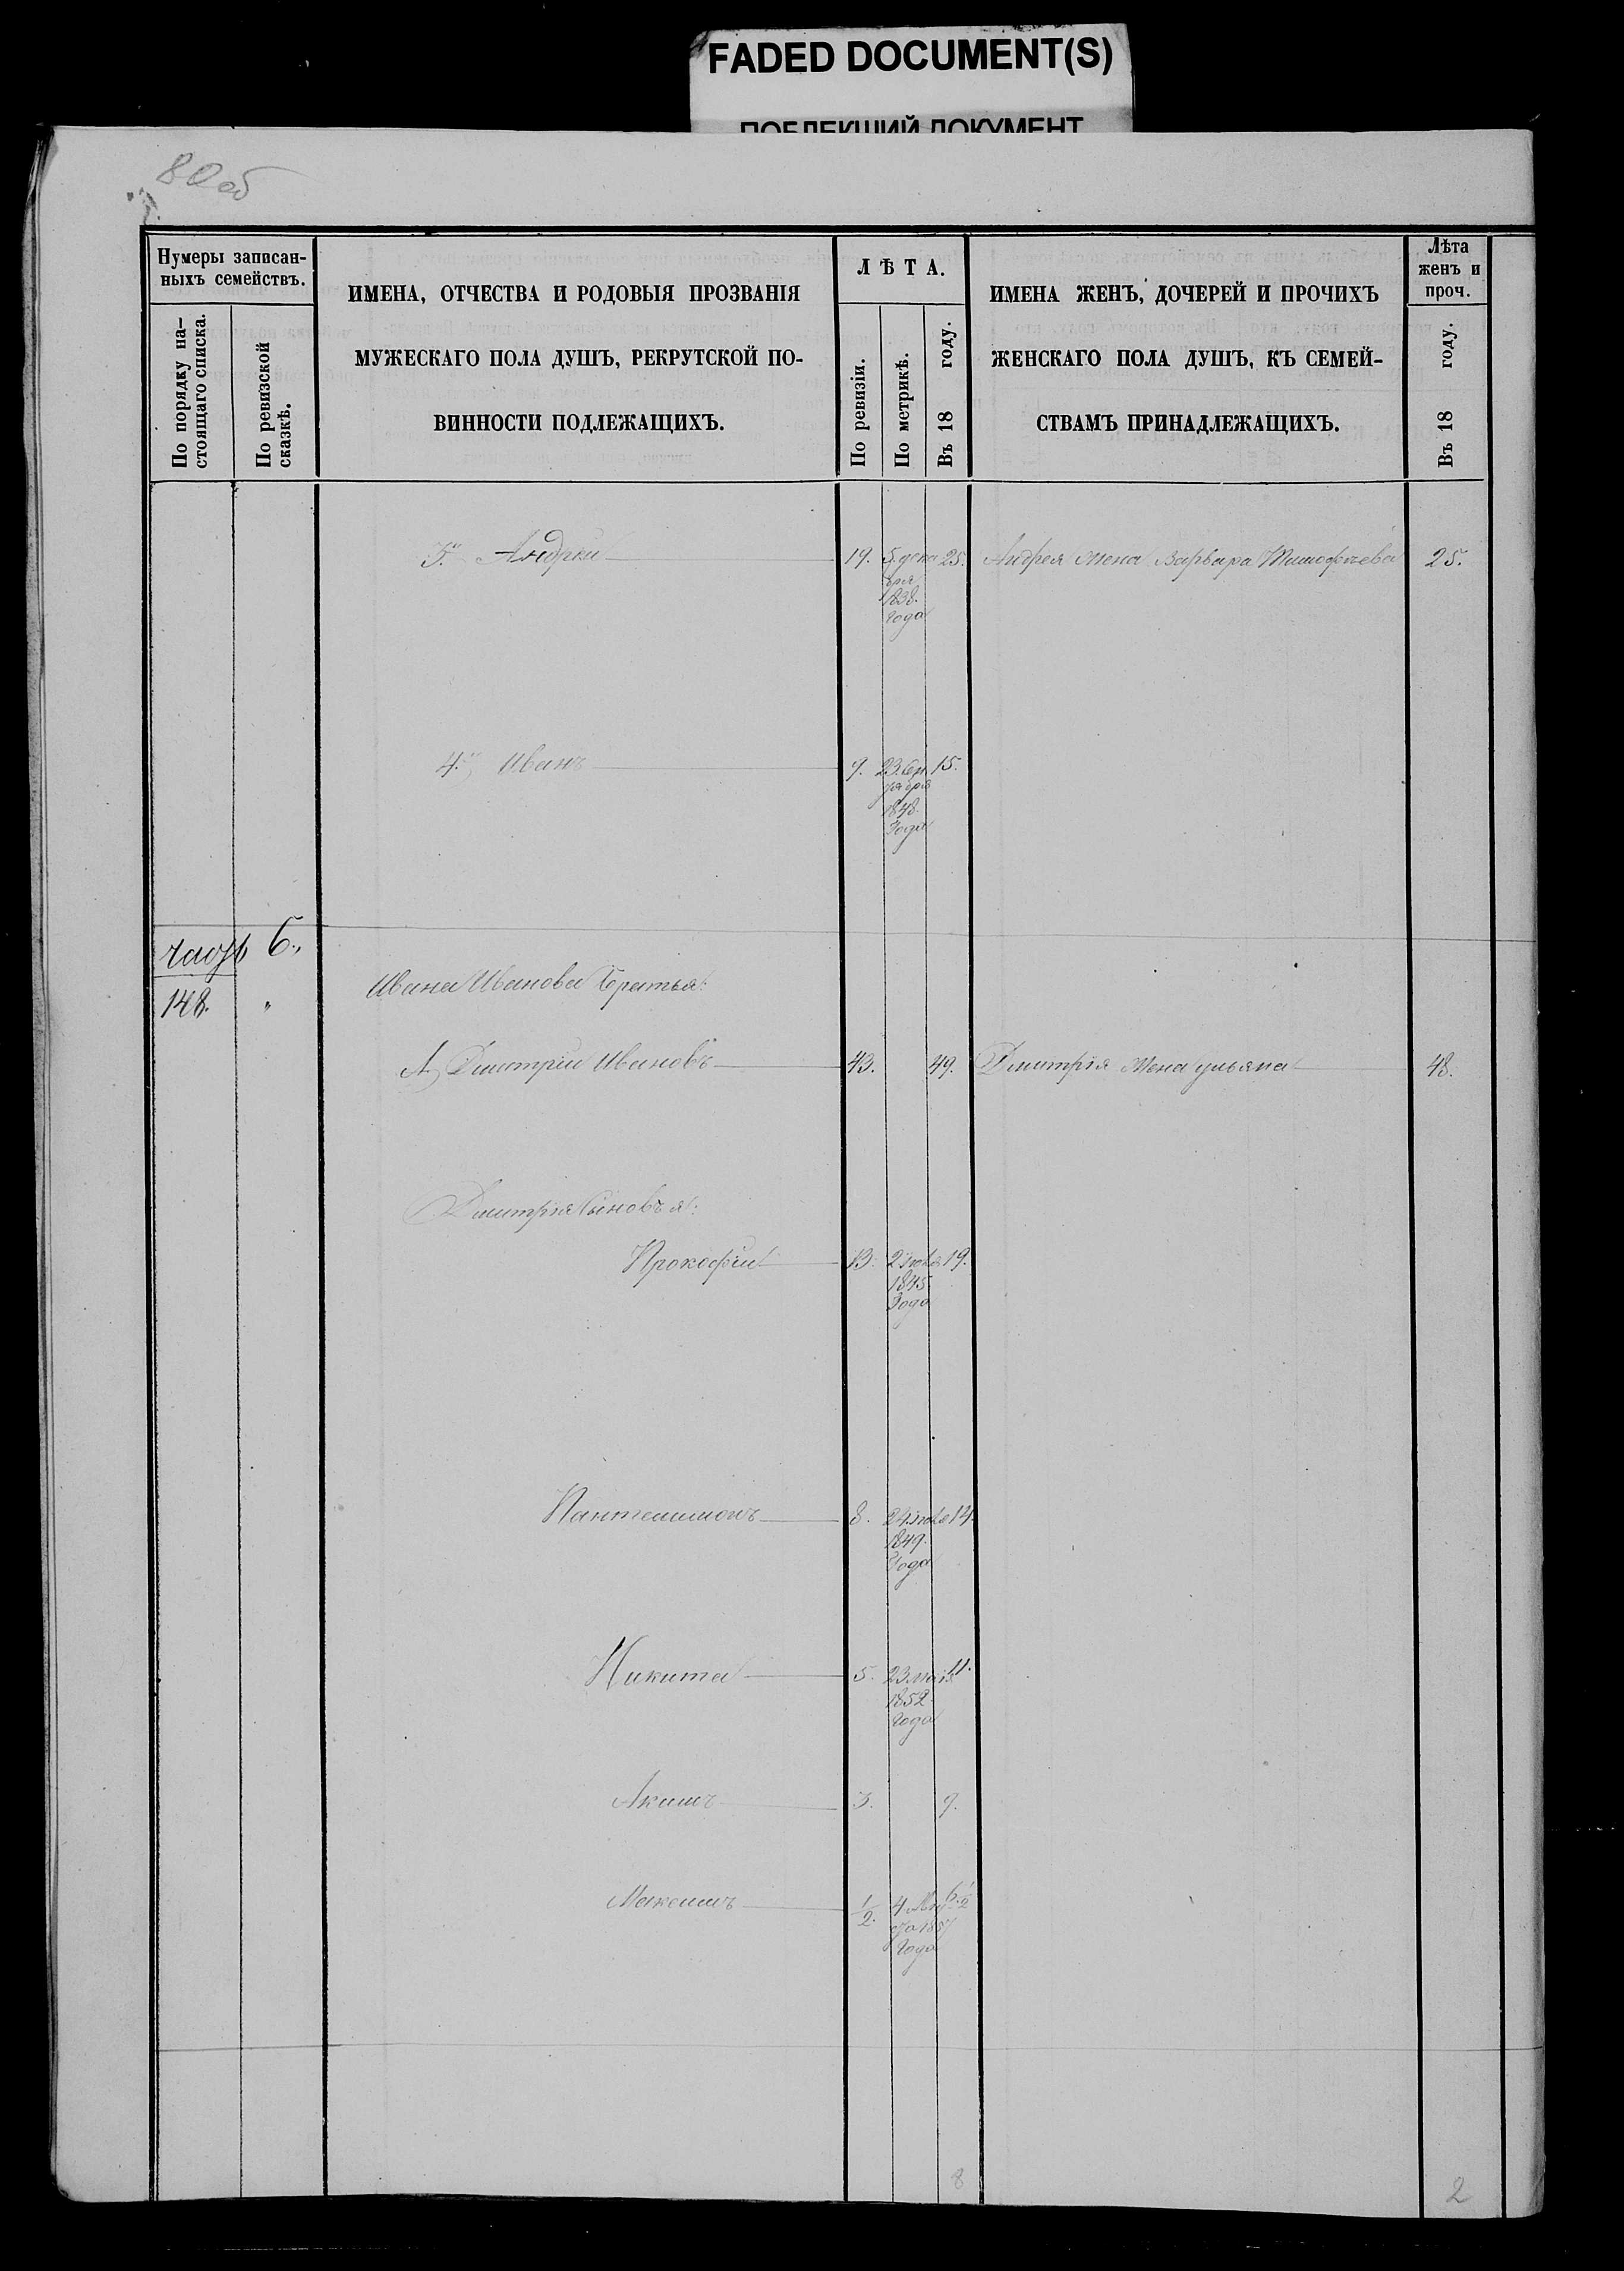 FADED DOCUMENT(S)
ПОБЛЕКШИЙ ДОКУМЕНТ
80 об
Нумеры записан-
ныхъ семействъ.
По порядку на-
стоящаго списка.
По ревизской
сказкѣ.
ИМЕНА, ОТЧЕСТВА И РОДОВЫЯ ПРОЗВАНІЯ
МУЖЕСКАГО ПОЛА ДУШЪ, РЕКРУТСКОЙ ПО-
ВИННОСТИ ПОДЛЕЖАЩИХЪ.
ЛѢТА.
По ревизіи.
По метрикѣ.
Въ 18 году.
ИМЕНА ЖЕНЪ, ДОЧЕРЕЙ И ПРОЧИХЪ
ЖЕНСКАГО ПОЛА ДУШЪ, КЪ СЕМЕЙ-
СТВАМЪ ПРИНАДЛЕЖАЩИХЪ.
Лѣта
женъ и
проч.
Въ 18 году.
Андрей 19. 5. дека 25. Андрея Жена Варвара Тимофѣева 25.
бря
1838.
Года
4. Иванъ 9. 23. Сен 15.
тября
1848
Года
часть 6.
148. " Ивана Иванова Братья:
Дмитрій Ивановъ 43. 49. Дмитрія Жена Ульяна 48.
Дмитрія Сыновья:
Прокофій 13. 2 19.
1845
Года
Пантелимонъ 8. 24 14.
1849.
Года
Никита 5. 23 мая 11.
1852
Года
Акимъ 3. 9.
Максимъ 1/2. 4 Мар 6 1/2
та 1857
Года
8 2